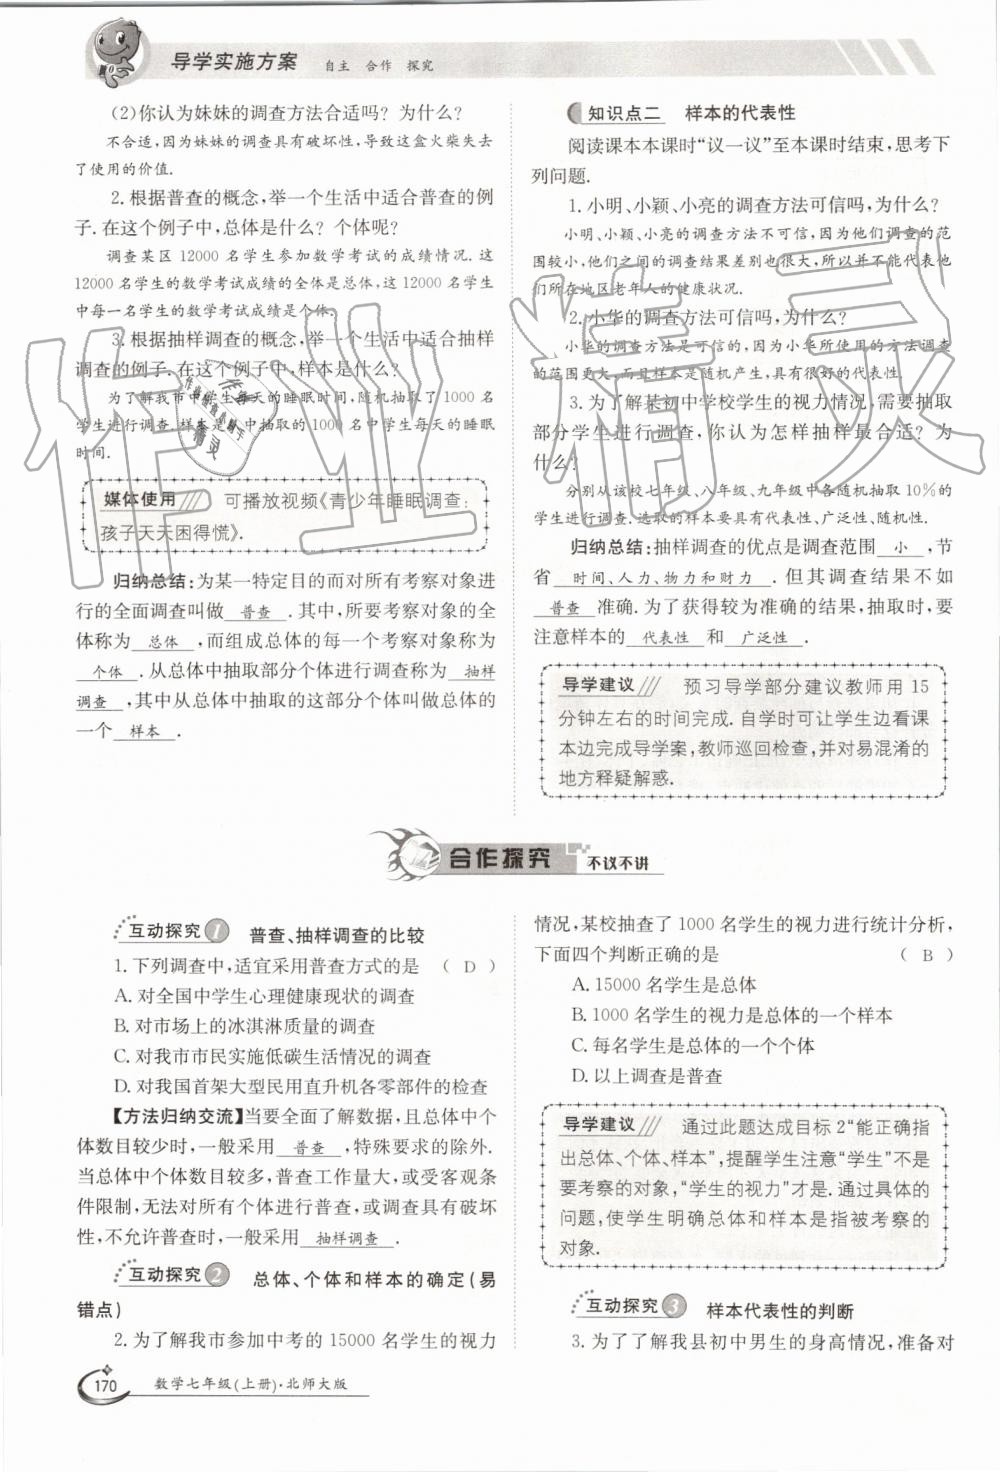 导学实施方案 自主 合作 探究
(2)你认为妹妹的调查方法合适吗？为什么？
不合适,因为妹妹的调查具有破坏性,导致这盒火柴失去
了使用的价值.
2.根据普查的概念,举一个生活中适合普查的例
子.在这个例子中,总体是什么？个体呢？
调查某区12000名学生参加数学考试的成绩情况.这
12000名学生的数学考试成绩的全体是总体,这12000名学生
中每一名学生的数学考试成绩是个体.
3.根据抽样调查的概念,举一个生活中适合抽样
调查的例子.在这个例子中,样本是什么？
为了解我市中学生每天的睡眠时间,随机抽取了1000名
学生进行调查.样本是从中抽取的1000名中学生每天的睡眠
时间.
媒体使用 可播放视频《青少年睡眠调查:
孩子天天困得慌》.
归纳总结:为某一特定目的而对所有考察对象进
行的全面调查叫做 普查 .其中,所要考察对象的全
体称为 总体 ,而组成总体的每一个考察对象称为
个体 .从总体中抽取部分个体进行调查称为 抽样
调查 ,其中从总体中抽取的这部分个体叫做总体的
一个 样本 .
知识点二 样本的代表性
阅读课本本课时“议一议”至本课时结束,思考下
列问题.
1.小明、小颖、小亮的调查方法可信吗,为什么？
小明、小颖、小亮的调查方法不可信,因为他们调查的范
围较小,他们之间的调查结果差别也很大,所以并不能代表他
们所在地区老年人的健康状况.
2.小华的调查方法可信吗,为什么？
小华的调查方法是可信的,因为小华所使用的方法调查
的范围更大,而且样本是随机产生,具有很好的代表性.
3.为了解某初中学校学生的视力情况,需要抽取
部分学生进行调查,你认为怎样抽样最合适？为
什么？
分别从该校七年级、八年级、九年级中各随机抽取10%的
学生进行调查.选取的样本要具有代表性、广泛性、随机性.
归纳总结:抽样调查的优点是调查范围 小 ,节
省 时间、人力、物力和财力 .但其调查结果不如
普查 准确.为了获得较为准确的结果,抽取时,要
注意样本的 代表性 和 广泛性 .
导学建议 预习导学部分建议教师用15
分钟左右的时间完成.自学时可让学生边看课
本边完成导学案,教师巡回检查,并对易混淆的
地方释疑解惑.
合作探究 不议不讲
互动探究1 普查、抽样调查的比较
1.下列调查中,适宜采用普查方式的是 ( D )
A.对全国中学生心理健康现状的调查
B.对市场上的冰淇淋质量的调查
C.对我市市民实施低碳生活情况的调查
D.对我国首架大型民用直升机各零部件的检查
【方法归纳交流】当要全面了解数据,且总体中个
体数目较少时,一般采用 普查 ,特殊要求的除外.
当总体中个体数目较多,普查工作量大,或受客观条
件限制,无法对所有个体进行普查,或调查具有破坏
性,不允许普查时,一般采用 抽样调查 .
互动探究2 总体、个体和样本的确定(易
错点)
2.为了解我市参加中考的15000名学生的视力
情况,某校抽查了1000名学生的视力进行统计分析,
下面四个判断正确的是 ( B )
A.15000名学生是总体
B.1000名学生的视力是总体的一个样本
C.每名学生是总体的一个个体
D.以上调查是普查
导学建议 通过此题达成目标2“能正确指
出总体、个体、样本”,提醒学生注意“学生”不是
要考察的对象,“学生的视力”才是.通过具体的
问题,使学生明确总体和样本是指被考察的
对象.
互动探究3 样本代表性的判断
3.为了了解我县初中男生的身高情况,准备对
170 数学七年级(上册)·北师大版
作业精灵